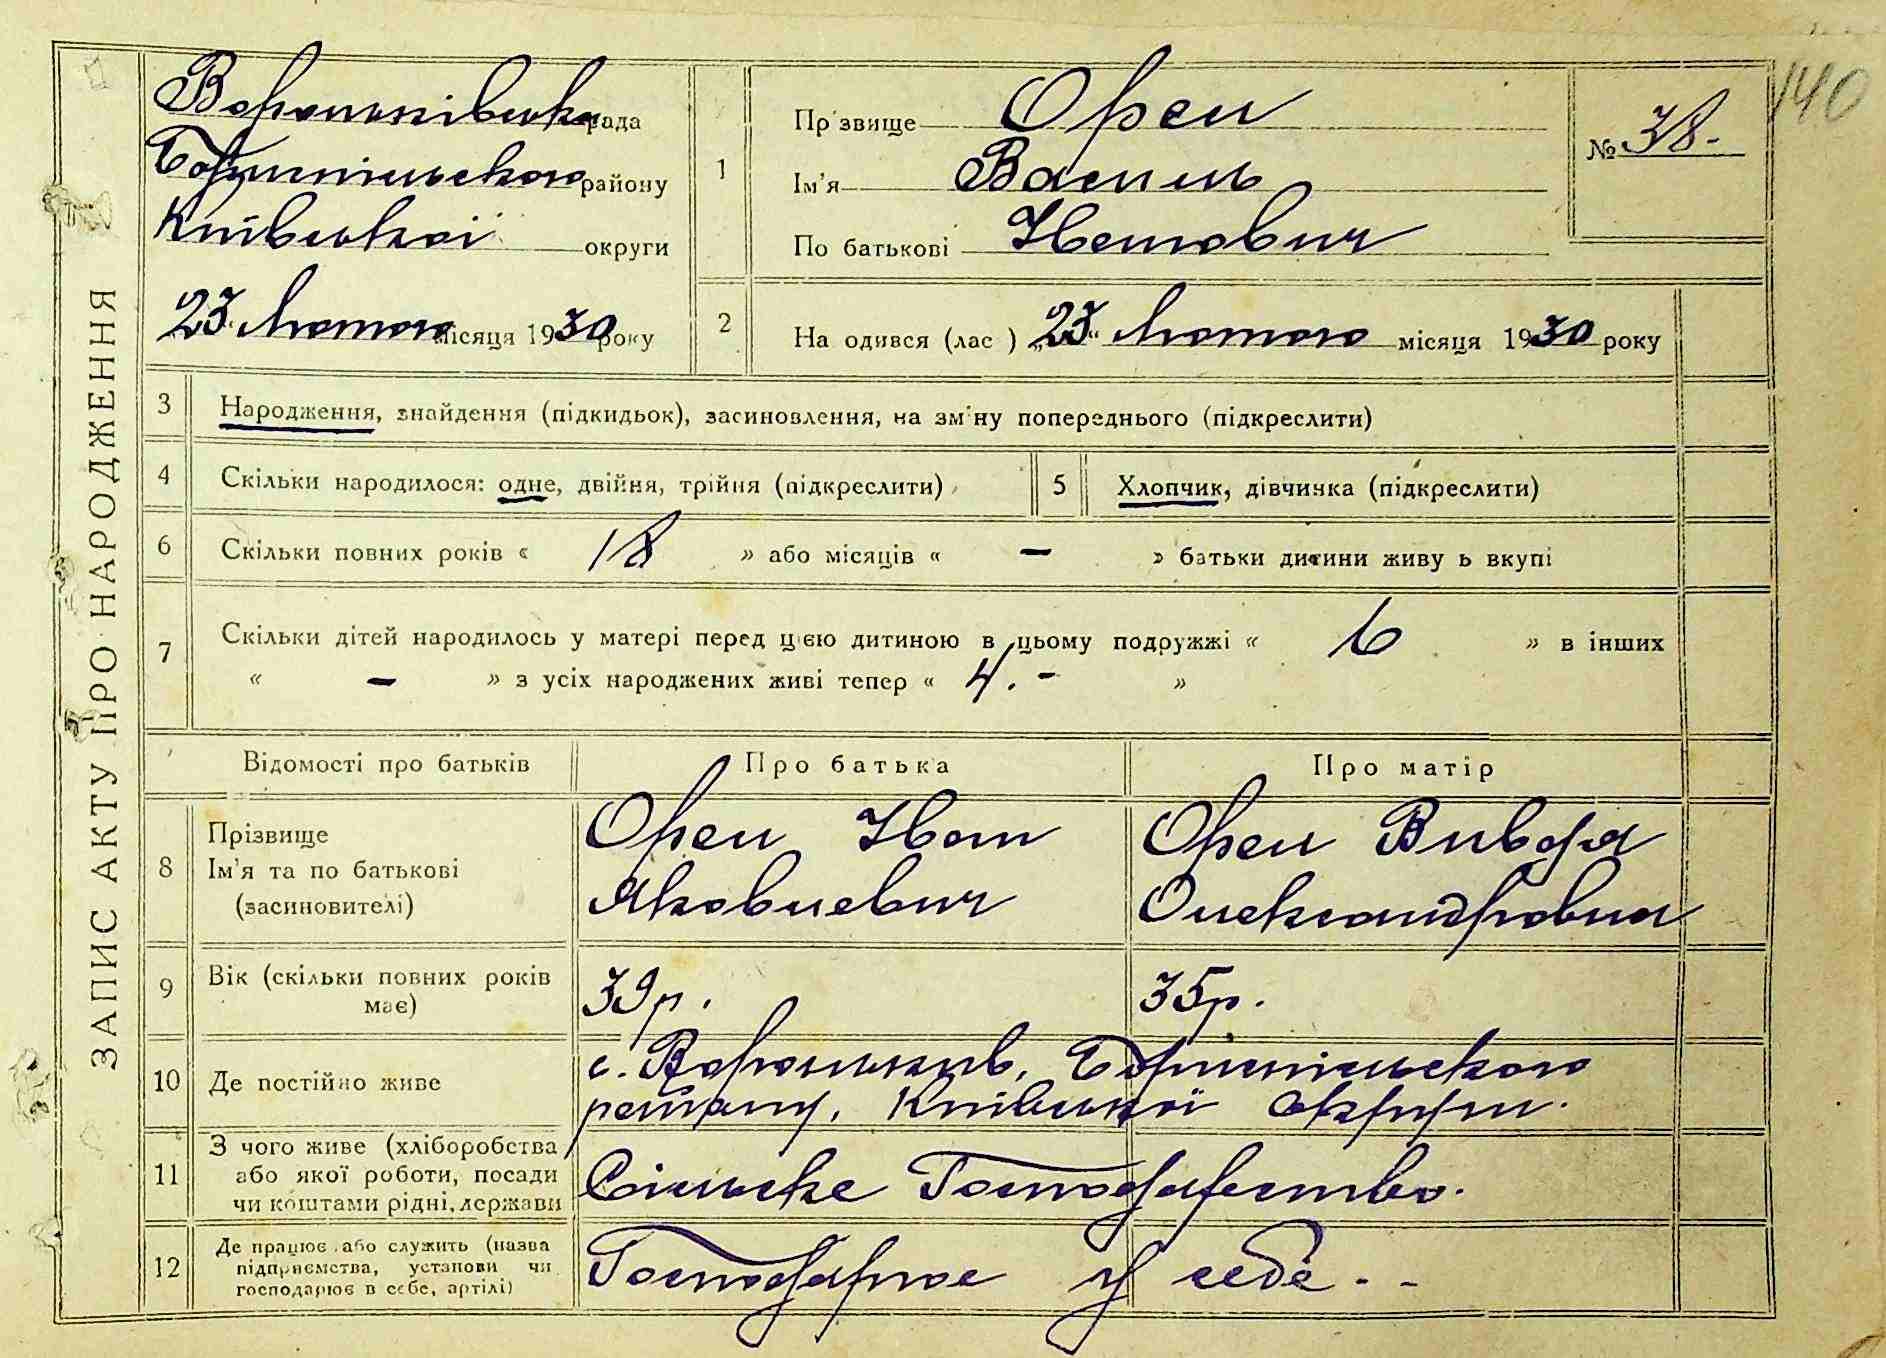 140
ЗАПИС АКТУ ПРО НАРОДЖЕННЯ
Вороньківська рада
Бориспільського району
Київської округи
„23“ Лютого місяця 1930 року
1 Прізвище Орел
Ім'я Василь
По батькові
№ 38.
2 На одився (лас ) „23“ Лютого місяця 1930 року
3 Народження, знайдення (підкидьок), засиновлення, на зміну попереднього (підкреслити)
4 Скільки народилося: одне, двійня, трійня (підкреслити)
5 Хлопчик, дівчинка (підкреслити)
6 Скільки повних років « 18 » або місяців « – » батьки дитини живу ь вкупі
7 Скільки дітей народилось у матері перед цією дитиною в цьому подружжі « 6 » в інших
« – » з усіх народжених живі тепер « 4. - »
Відомості про батьків Про батька Про матір
8 Прізвище
Ім'я та по батькові
(засиновителі)
Орел
Яковлевич
Орел Вивдя
Олександровна
9 Вік (скільки повних років
має)
39 р.
35 р.
10 Де постійно живе
с. Вороньків, Бориспільського
району, Київської округи.
11 З чого живе (хліборобства
або якої роботи, посади
чи коштами рідні, держави
Сільське Господарство.
12 Де працює або служить (назва
підприємства, установи чи
господарює в себе, артілі)
Господарює у себе. - -